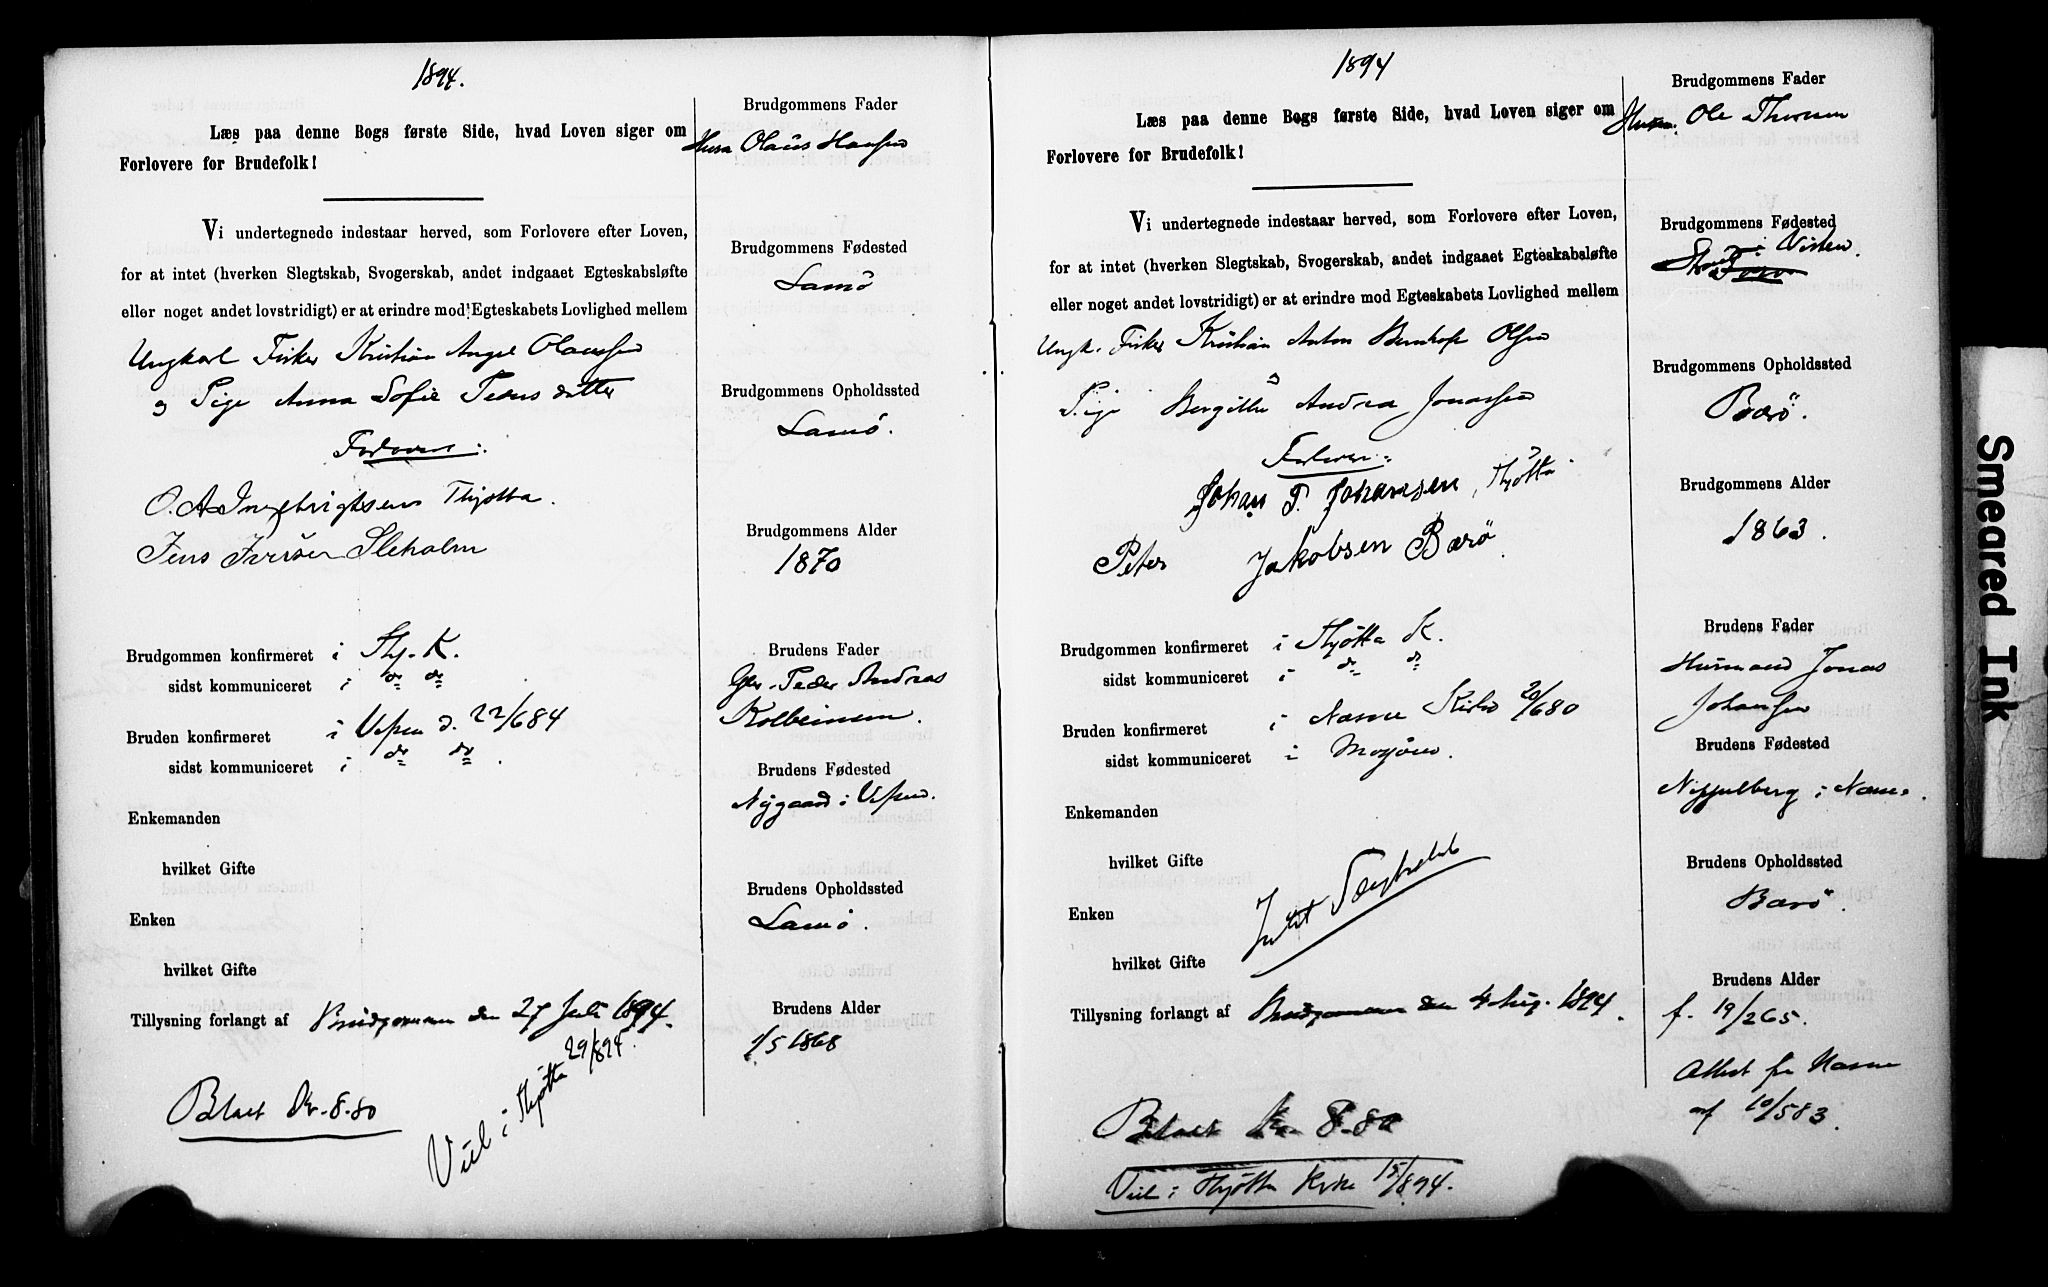 1894.
Læs paa denne Bogs første Side, hvad Loven siger om
Forlovere for Brudefolk!
Vi undertegnede indestaar herved, som Forlovere efter Loven,
for at intet (hverken Slegtskab, Svogerskab, andet indgaaet Egteskabsløfte
eller noget andet lovstridigt) er at erindre mod Egteskabets Lovlighed mellem
Ungkarl Fisker Kristian Angel Olaussen
og Pige Anna Sofie Pedersdatter
Forlovere:
O. A. Ingebrigtsen Thjøtta.
Jens Iversen Sleholm
Brudgommen konfirmeret i Thj. K.
sidst kommuniceret i do do
Bruden konfirmeret i Vefsen d. 22/684
sidst kommuniceret i do do.
Enkemanden
hvilket Gifte
Enken
hvilket Gifte
Tillysning forlangt af Brudgommen den 27 Juli 1894.
Betalt Kr. 8-80
Viet i Thjøtta 29/894.
Brudgommens Fader
Husm Olaus Hansen
Brudgommens Fødested
Lamø
Brudgommens Opholdssted
Lamø.
Brudgommens Alder
1870
Brudens Fader
Gbr. Peder Andreas
Kolbeinsen.
Brudens Fødested
Nygaard i Vefsen.
Brudens Opholdssted
Lamø.
Brudens Alder
1/5 1868
1894
Læs paa denne Bogs første Side, hvad Loven siger om
Forlovere for Brudefolk!
Vi undertegnede indestaar herved, som Forlovere efter Loven,
for at intet (hverken Slegtskab, Svogerskab, andet indgaaet Egteskabsløfte
eller noget andet lovstridigt) er at erindre mod Egteskabets Lovlighed mellem
Ungk. Fisker Kristian Anton Olsen
og
Pige Bergitte Andrea Jonassen
Forlovere:
Johan P. Johansen, Thjøtta
Peter Jakobsen Barø
Brudgommen konfirmeret i Thjøtta K.
sidst kommuniceret i do do
Bruden konfirmeret i Næsne Kirke 20/680
sidst kommuniceret i Mosjøen.
Enkemanden
hvilket Gifte
Enken
hvilket Gifte
Intet Slegtskab
Tillysning forlangt af Brudgommen den 4 Aug. 1894.
Betalt Kr. 8-80
Viet i Thjøtta Kirke 15/894.
Brudgommens Fader
Husm. Ole Thorsen
Brudgommens Fødested
i Visten.
Brudgommens Opholdssted
Barø.
Brudgommens Alder
1863.
Brudens Fader
Husmand Jonas
Johansen
Brudens Fødested
i Næsne.
Brudens Opholdssted
Barø.
Brudens Alder
f. 19/265.
Attest fra Næsne
af 10/583.
Smeared Ink